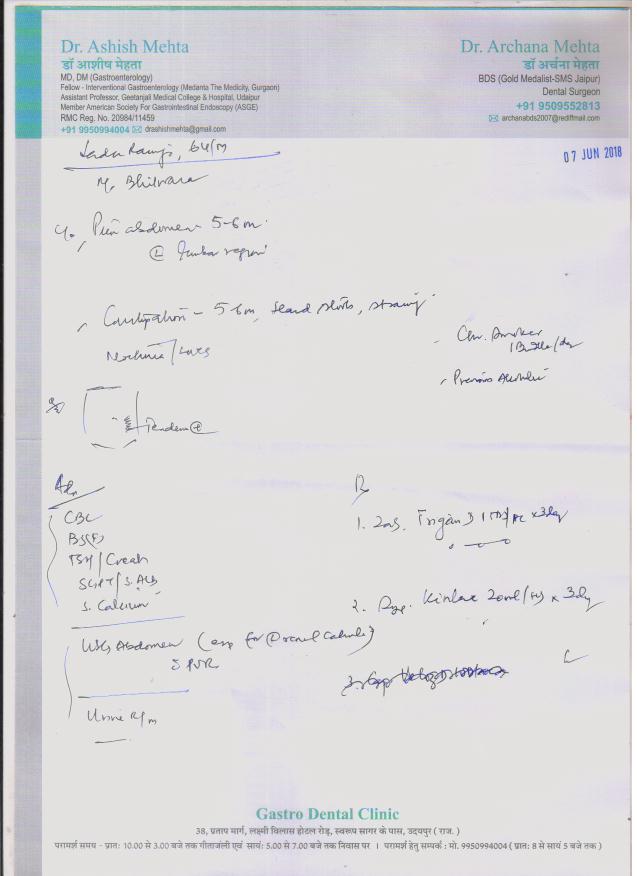 Dr. Ashish Mehta
डॉ आशीष मेहता
MD, DM (Gastroenterology)
Fellow - Interventional Gastroenterology (Medanta The Medicity, Gurgaon)
Assistant Professor, Geetanjali Medical College & Hospital, Udaipur
Member American Society For Gastrointestinal Endoscopy (ASGE)
RMC Reg. No. 20984/11459
+91 9950994004 drashishmehta@gmail.com
Dr. Archana Mehta
डॉ अर्चना मेहता
BDS (Gold Medalist-SMS Jaipur)
Dental Surgeon
+91 9509552813
archanabds2007@rediffmail.com
07 JUN 2018
64/M
Bhilwara
c/o Pain abdomen 5-6m
Ⓛ lumbar region
Constipation - 5-6m, Hard stools, straining
Nocturia
Chr. Smoker
1 Bundle/day
Previous Alcoholic
Adv
CBC
BS(F)
TSH/Creat
SGPT/S. Alb
S. Calcium
USG Abdomen (esp for renal calculi)
PVR
Urine R/m
Rx
1. Trigan D 1 x 3day
2. Syp. Kinlax 20ml/HS x 3day
Gastro Dental Clinic
38, प्रताप मार्ग, लक्ष्मी विलास होटल रोड़, स्वरूप सागर के पास, उदयपुर ( राज. )
परामर्श समय - प्रातः 10.00 से 3.00 बजे तक गीतांजली एवं सायं: 5.00 से 7.00 बजे तक निवास पर । परामर्श हेतु सम्पर्क : मो. 9950994004 ( प्रातः 8 से सायं 5 बजे तक )